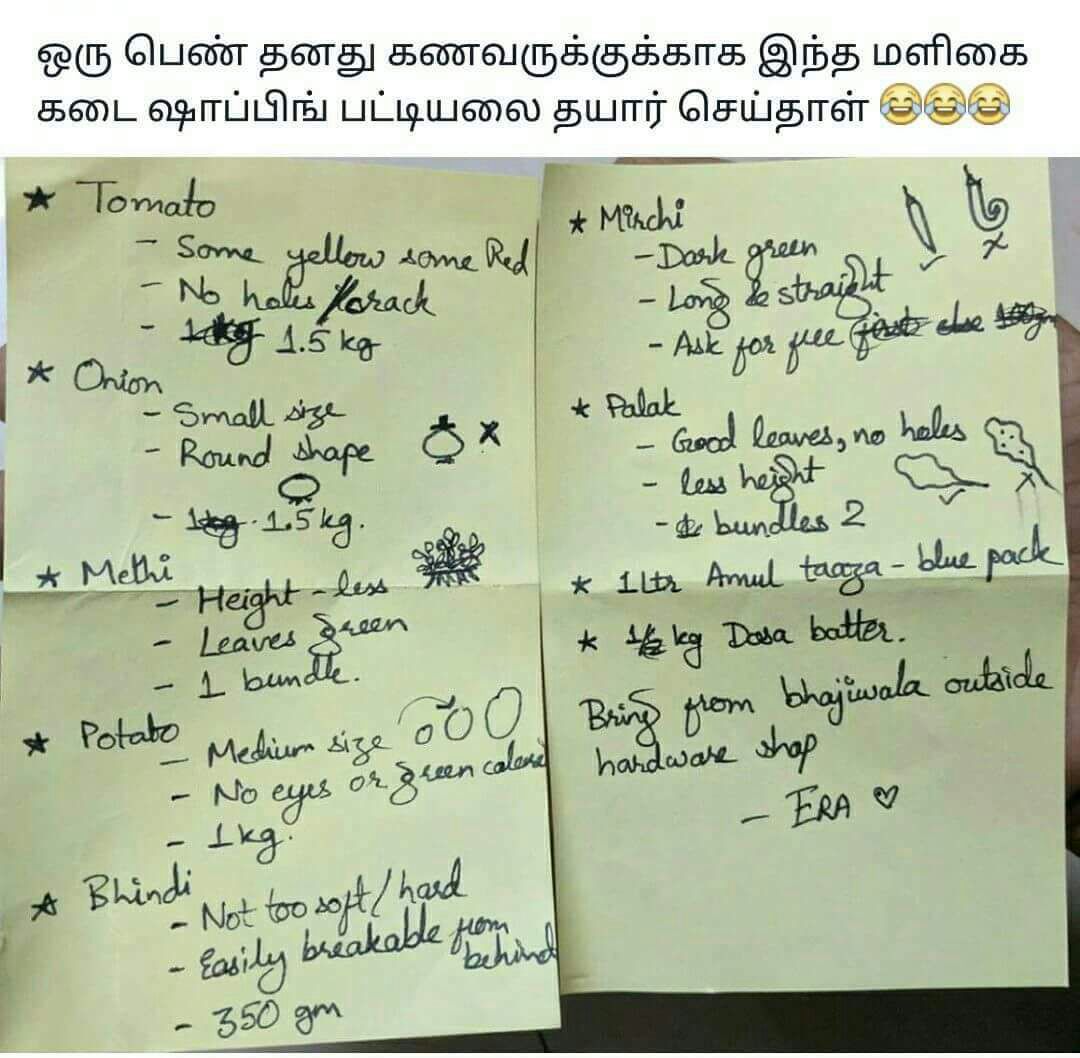 ஒரு பெண் தனது கணவருக்குக்காக இந்த மளிகை
கடை ஷாப்பிங் பட்டியலை தயார் செய்தாள் 😂😂😂
★ Tomato
- Some yellow some Red
- No holes / crack
- 1.5 kg
★ Onion
- Small size
- Round shape
- 1.5 kg.
★ Methi
- Height - less
- Leaves green
- 1 bundle.
★ Potato
- Medium size
- No eyes or green colored
- 1 kg.
★ Bhindi
- Not too soft / hard
- Easily breakable from
behind
- 350 gm
★ Mirchi
- Dark green
- Long & straight
- Ask for free
★ Palak
- Good leaves, no holes
- less height
- bundles 2
★ 1 Ltr Amul taaza - blue pack
★ 1/2 kg Dosa batter.
Bring from bhajiwala outside
hardware shop
- ERA ♡